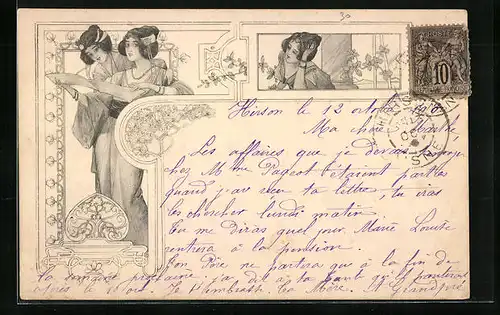 30
POSTES
10
Hirson le 12 octobre
Ma chère Marthe
Les affaires que je devais
chez Mme Pageot étaient parties
quand j'ai reçu ta lettre, tu iras
les chercher lundi matin.
Tu me diras quel jour Marie Louise
rentrera à la pension.
Ton Père ne partira qu'à la fin de
la semaine prochaine j'ai dit à ta
après Je t'embrasse. Ta Mère.